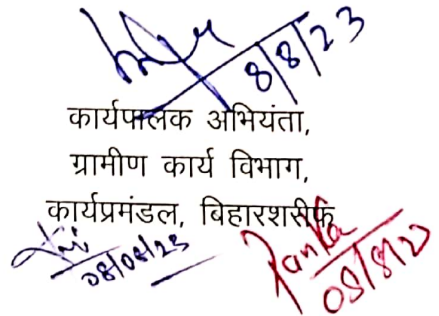 8/8/23
कार्यपालक अभियंता,
ग्रामीण कार्य विभाग,
कार्यप्रमंडल, बिहारशरीफ
08/08/23